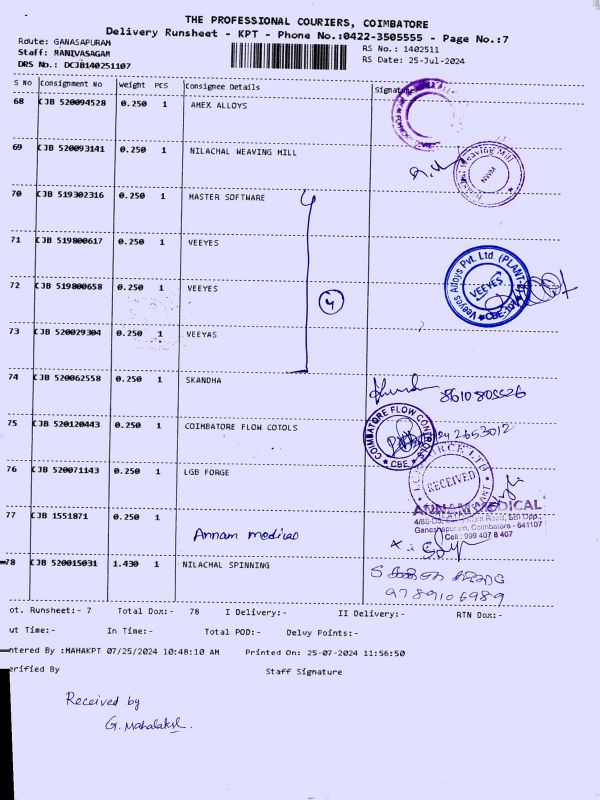 THE PROFESSIONAL COURIERS, COIMBATORE
Delivery Runsheet - KPT - Phone No.:0422-3505555 - Page No.:7
Route: GANASAPURAM
Staff: MANIVASAGAM
DRS No.: DCJB140251107
RS No.: 1402511
RS Date: 25-Jul-2024
S No Consignment No Weight PCS Consignee Details Signature
68 CJB 520094528 0.250 1 AMEX ALLOYS
69 CJB 520093141 0.250 1 NILACHAL WEAVING MILL
70 CJB 519302316 0.250 1 MASTER SOFTWARE
71 CJB 519800617 0.250 1 VEEYES
Veeyes Alloys Pvt. Ltd (PLANT
VEEYES
72 CJB 519800658 0.250 1 VEEYES
4
73 CJB 520029304 0.250 1 VEEYAS
74 CJB 520062558 0.250 1 SKANDHA
75 CJB 520120443 0.250 1 COIMBATORE FLOW COTOLS
COIMBATORE FLOW CONTROLS
CBE
2653012
76 CJB 520071143 0.250 1 LGB FORGE
RECEIVED
77 CJB 1551871 0.250 1
Annam medical
ANNAM MEDICAL
Ganeshapuram, Coimbatore - 641107
Cell : 999 407 8 407
78 CJB 520015031 1.430 1 NILACHAL SPINNING
9789106989
ot. Runsheet:- 7 Total Dox:- 78 I Delivery:- II Delivery:- RTN Dox:-
ut Time:- In Time:- Total POD:- Delvy Points:-
ntered By :MAHAKPT 07/25/2024 10:48:10 AM Printed On: 25-07-2024 11:56:50
erified By Staff Signature
Received by
G. Mahalaksl.